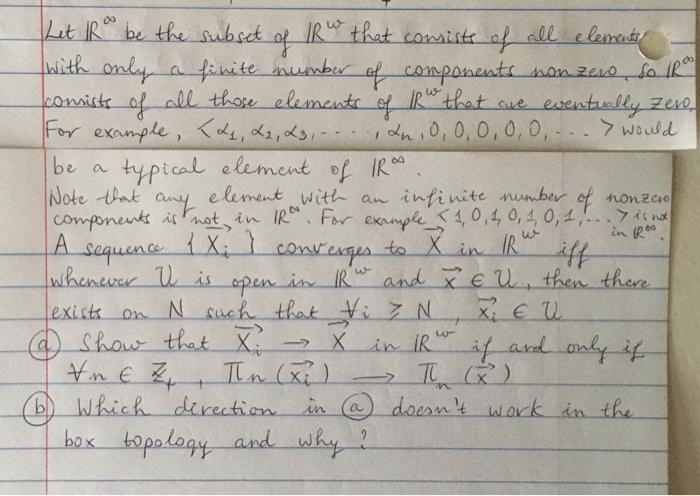 Let ℝ^∞ be the subset of ℝ^ω that consists of all elements
with only a finite number of components nonzero. So ℝ^∞
consists of all those elements of ℝ^ω that are eventually zero.
For example, <α₁, α₂, α₃, - - - -, αₙ, 0, 0, 0, 0, 0, - - - > would
be a typical element of ℝ^∞.
Note that any element with an infinite number of nonzero
components is not in ℝ^∞. For example <1, 0, 1, 0, 1, 0, 1, ... > is not in ℝ^∞.
A sequence { X⃗ᵢ } converges to X⃗ in ℝ^ω iff
whenever U is open in ℝ^ω and x⃗ ∈ U, then there
exists on N such that ∀i ≥ N, x⃗ᵢ ∈ U
(a) Show that X⃗ᵢ → X⃗ in ℝ^ω if and only if
∀n ∈ ℤ₊, πₙ(x⃗ᵢ) → πₙ(x⃗)
(b) Which direction in (a) doesn't work in the
box topology and why?